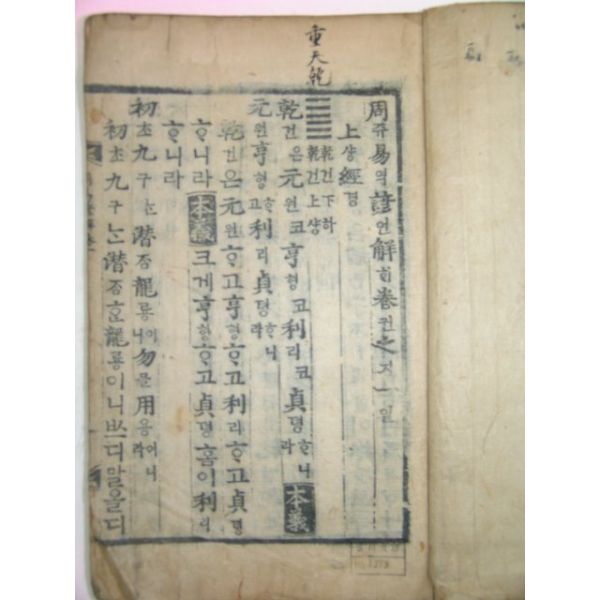 重天乾
周쥬易역諺언解ᄒᆡ卷권之지一일
上샹經경
乾건下하
乾건上샹
乾건은元원코亨형코利리코貞뎡ᄒᆞ니라 本義
元원亨형ᄒᆞ고利리貞뎡ᄒᆞ니라
乾건은元원ᄒᆞ고亨형ᄒᆞ고利리ᄒᆞ고貞뎡
ᄒᆞ니라 本義 크게亨형ᄒᆞ고貞뎡홈이利리
ᄒᆞ니라
初초九구ᄂᆞᆫ潛ᄌᆞᆷ龍룡이니勿믈用용이니라
初초九구ᄂᆞᆫ潛ᄌᆞᆷᄒᆞᆫ龍룡이니ᄡᅳ디말올디